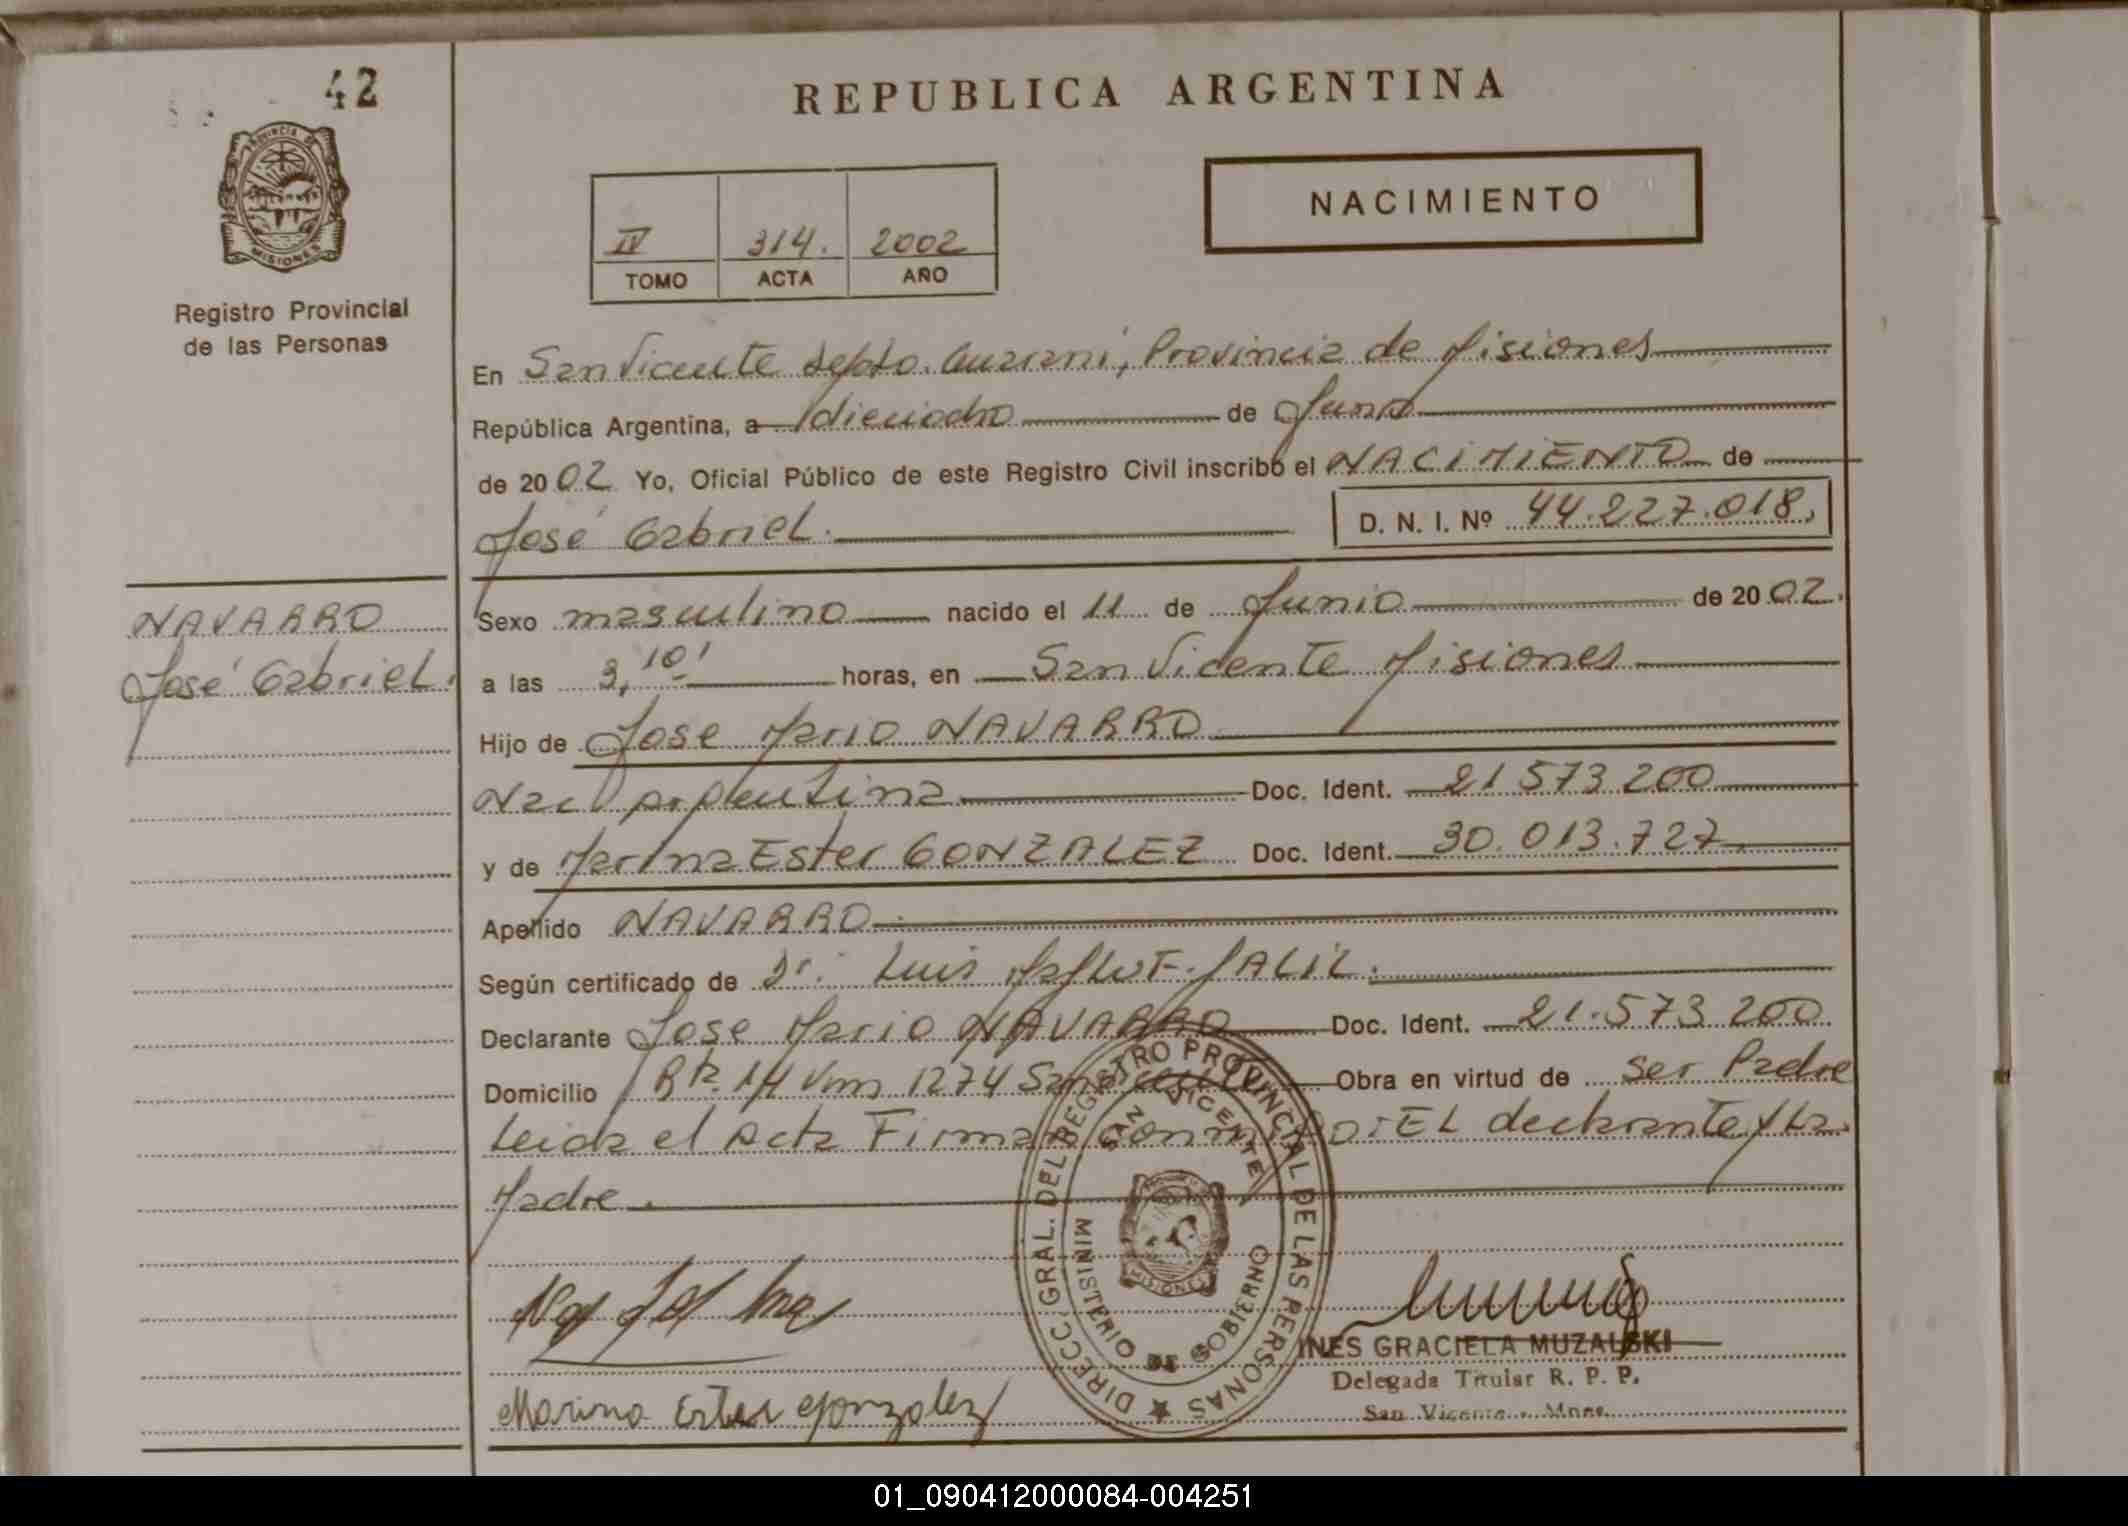 42
REPUBLICA ARGENTINA
PROVINCIA DE
MISIONES
Registro Provincial
de las Personas
NACIMIENTO
IV 314. 2002
TOMO ACTA AÑO
En San Vicente depto. Guaraní, Provincia de Misiones
República Argentina, a dieciocho de Junio
de 2002 Yo, Oficial Público de este Registro Civil inscribo el NACIMIENTO de
José Gabriel. D. N. I. Nº 44.227.018.
NAVARRO
José Gabriel.
Sexo masculino nacido el 11 de Junio de 2002.
a las 3,10' horas, en San Vicente Misiones
Hijo de Jose Mario NAVARRO
Nac argentina Doc. Ident. 21 573 200
y de Marina Ester GONZALEZ Doc. Ident. 30.013.727
Apellido NAVARRO
Según certificado de Dr. Luis
Declarante Jose Mario NAVARRO Doc. Ident. 21.573 200
Domicilio Rta. 14 Km 1274 San Vicente Obra en virtud de ser Padre
Leida el Acta Firman EL declarante y La
Madre.
DIRECC. GRAL. DEL REGISTRO PROVINCIAL DE LAS PERSONAS
SAN VICENTE
MINISTERIO DE GOBIERNO
MISIONES
INES GRACIELA MUZALSKI
Delegada Titular R. P. P.
San Vicente - Mnes.
Marina Ester Gonzalez
01_090412000084-004251